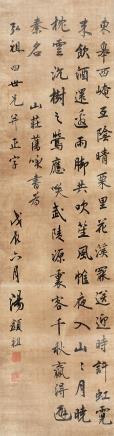 東皋西崦互陰晴粟里花溪窄送迎時許虹霓
來飲酒還過雨脚共吹笙風帷夜入山々月曉
枕雲沉樹々鶯應笑武陵源裏客千秋贏得避
秦名
山莊舊寓書爲
弘祖四世兄正字
戊辰六月湯顯祖